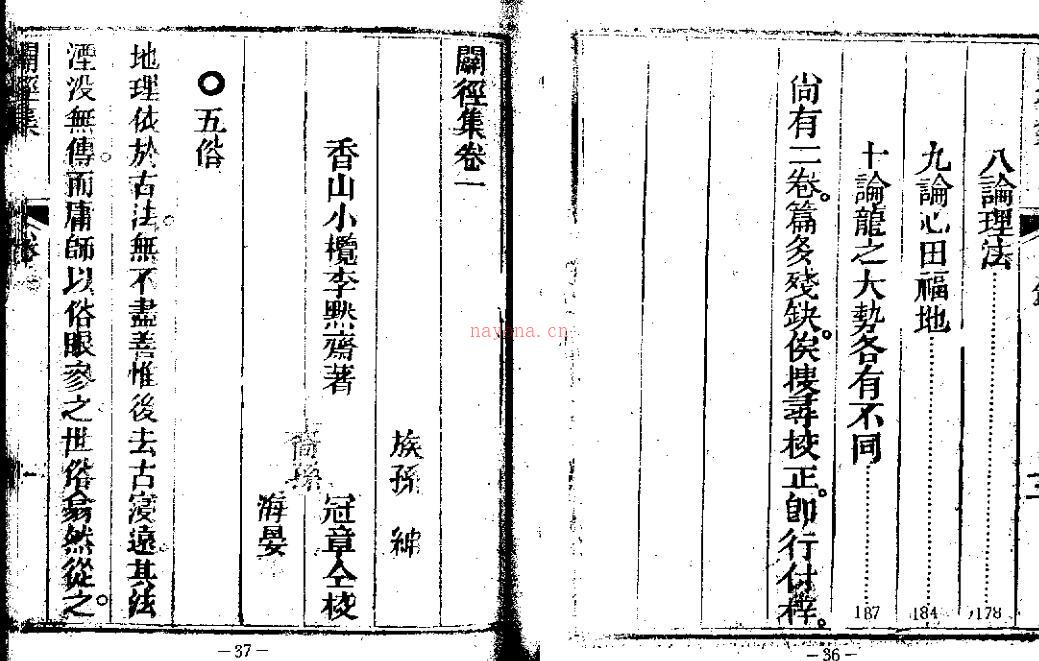 八論理法……178
九論心田福地……184
十論龍之大勢各有不同……187
尙有二卷。篇多殘缺。俟搜尋校正。卽行付梓。
—36—
闢徑集卷一
族孫 紳
香山小欖李黙齋著 冠章仝校
裔孫
海晏
○五俗
地理依於古法。無不盡善惟後去古寖遠。其法
湮没無傳。而庸師以俗眼參之世俗翕然從之。
闢徑集 卷一 一
—37—
nayana.cn